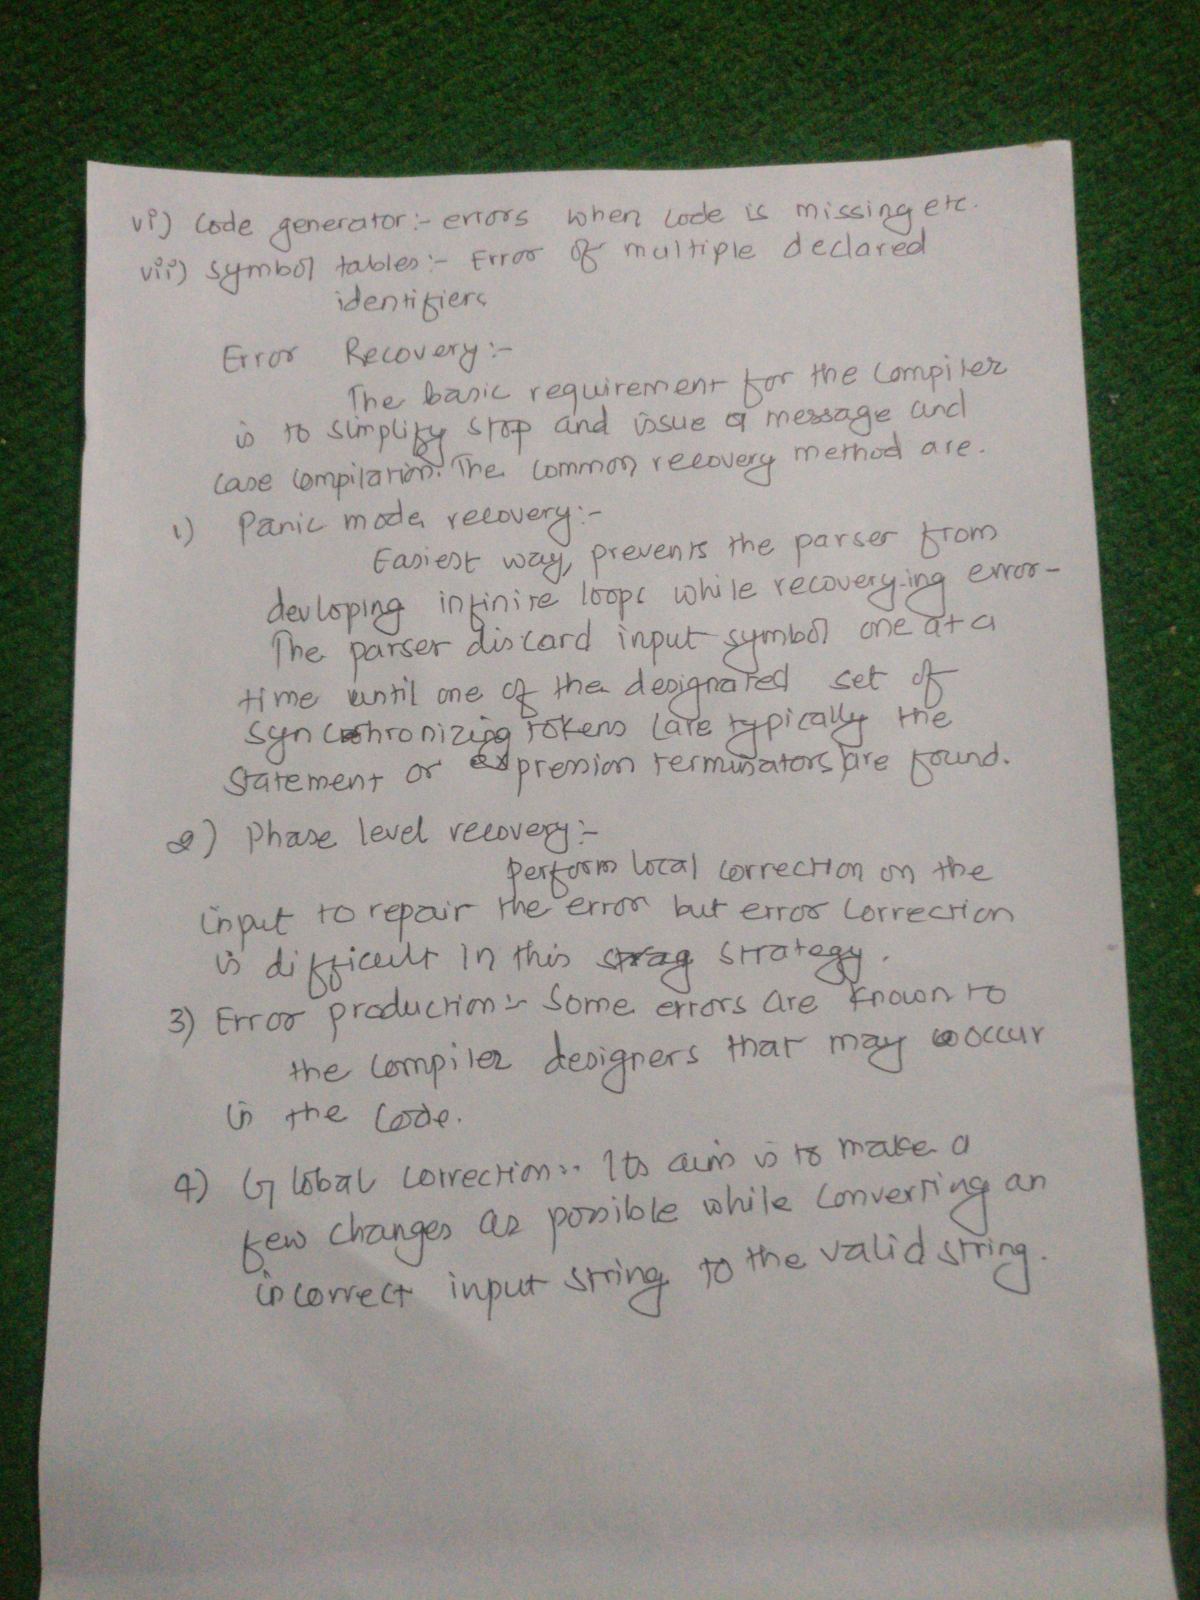 vi) Code generator:- errors when code is missing etc.
vii) symbol tables:- Error of multiple declared
identifiers
Error Recovery:-
The basic requirement for the compiler
is to simplify stop and issue a message and
case compilation. The common recovery method are.
1) Panic mode recovery:-
Easiest way, prevents the parser from
devloping infinite loops while recovery-ing error-
The parser discard input symbol one at a
time until one of the designated set of
synchronizing tokens (are typically the
statement or expression terminators) are found.
2) Phase level recovery:-
perform local correction on the
input to repair the error but error correction
is difficult in this strategy.
3) Error production:- Some errors are known to
the compiler designers that may occur
in the code.
4) Global correction:- Its aim is to make a
few changes as possible while converting an
incorrect input string to the valid string.